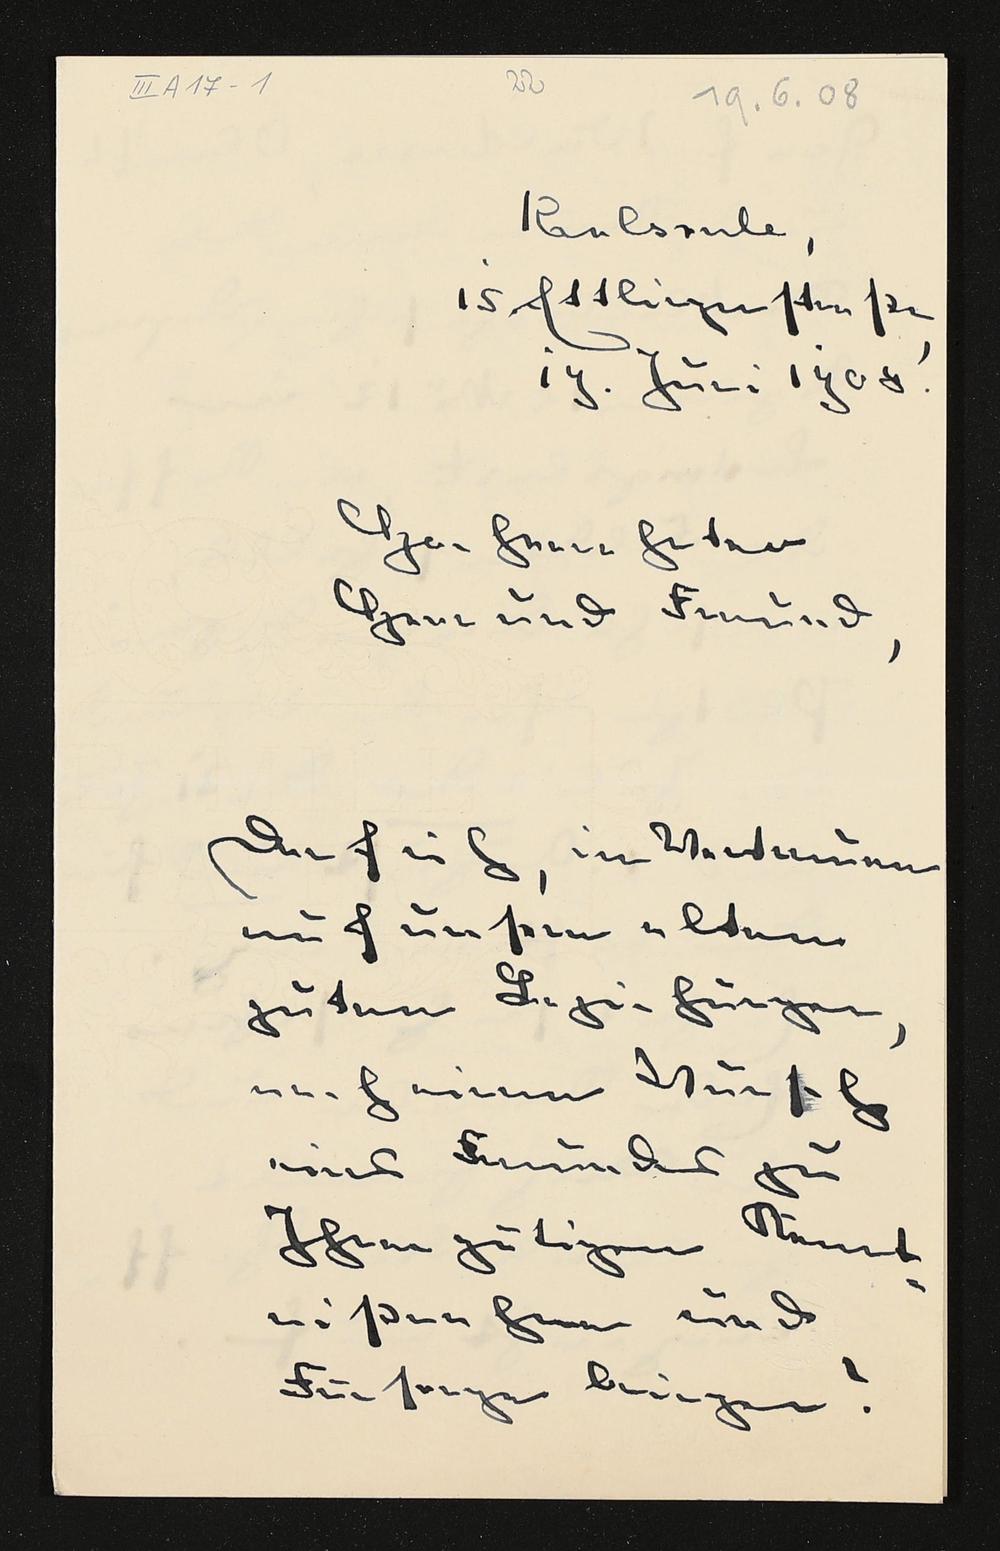 III A 17 - 1
22
19. 6. 08
Karlsruhe,
15, Ettlingerstraße,
19. Juni 1908.
Hochverehrter
Herr und Freund,
Darf ich, im Vertrauen
auf unsere alten
guten Beziehungen,
nach einen Wunsch
eines Freundes zu
Ihrer gütigen Kennt-
nißnahme und
Fürsorge bringen?